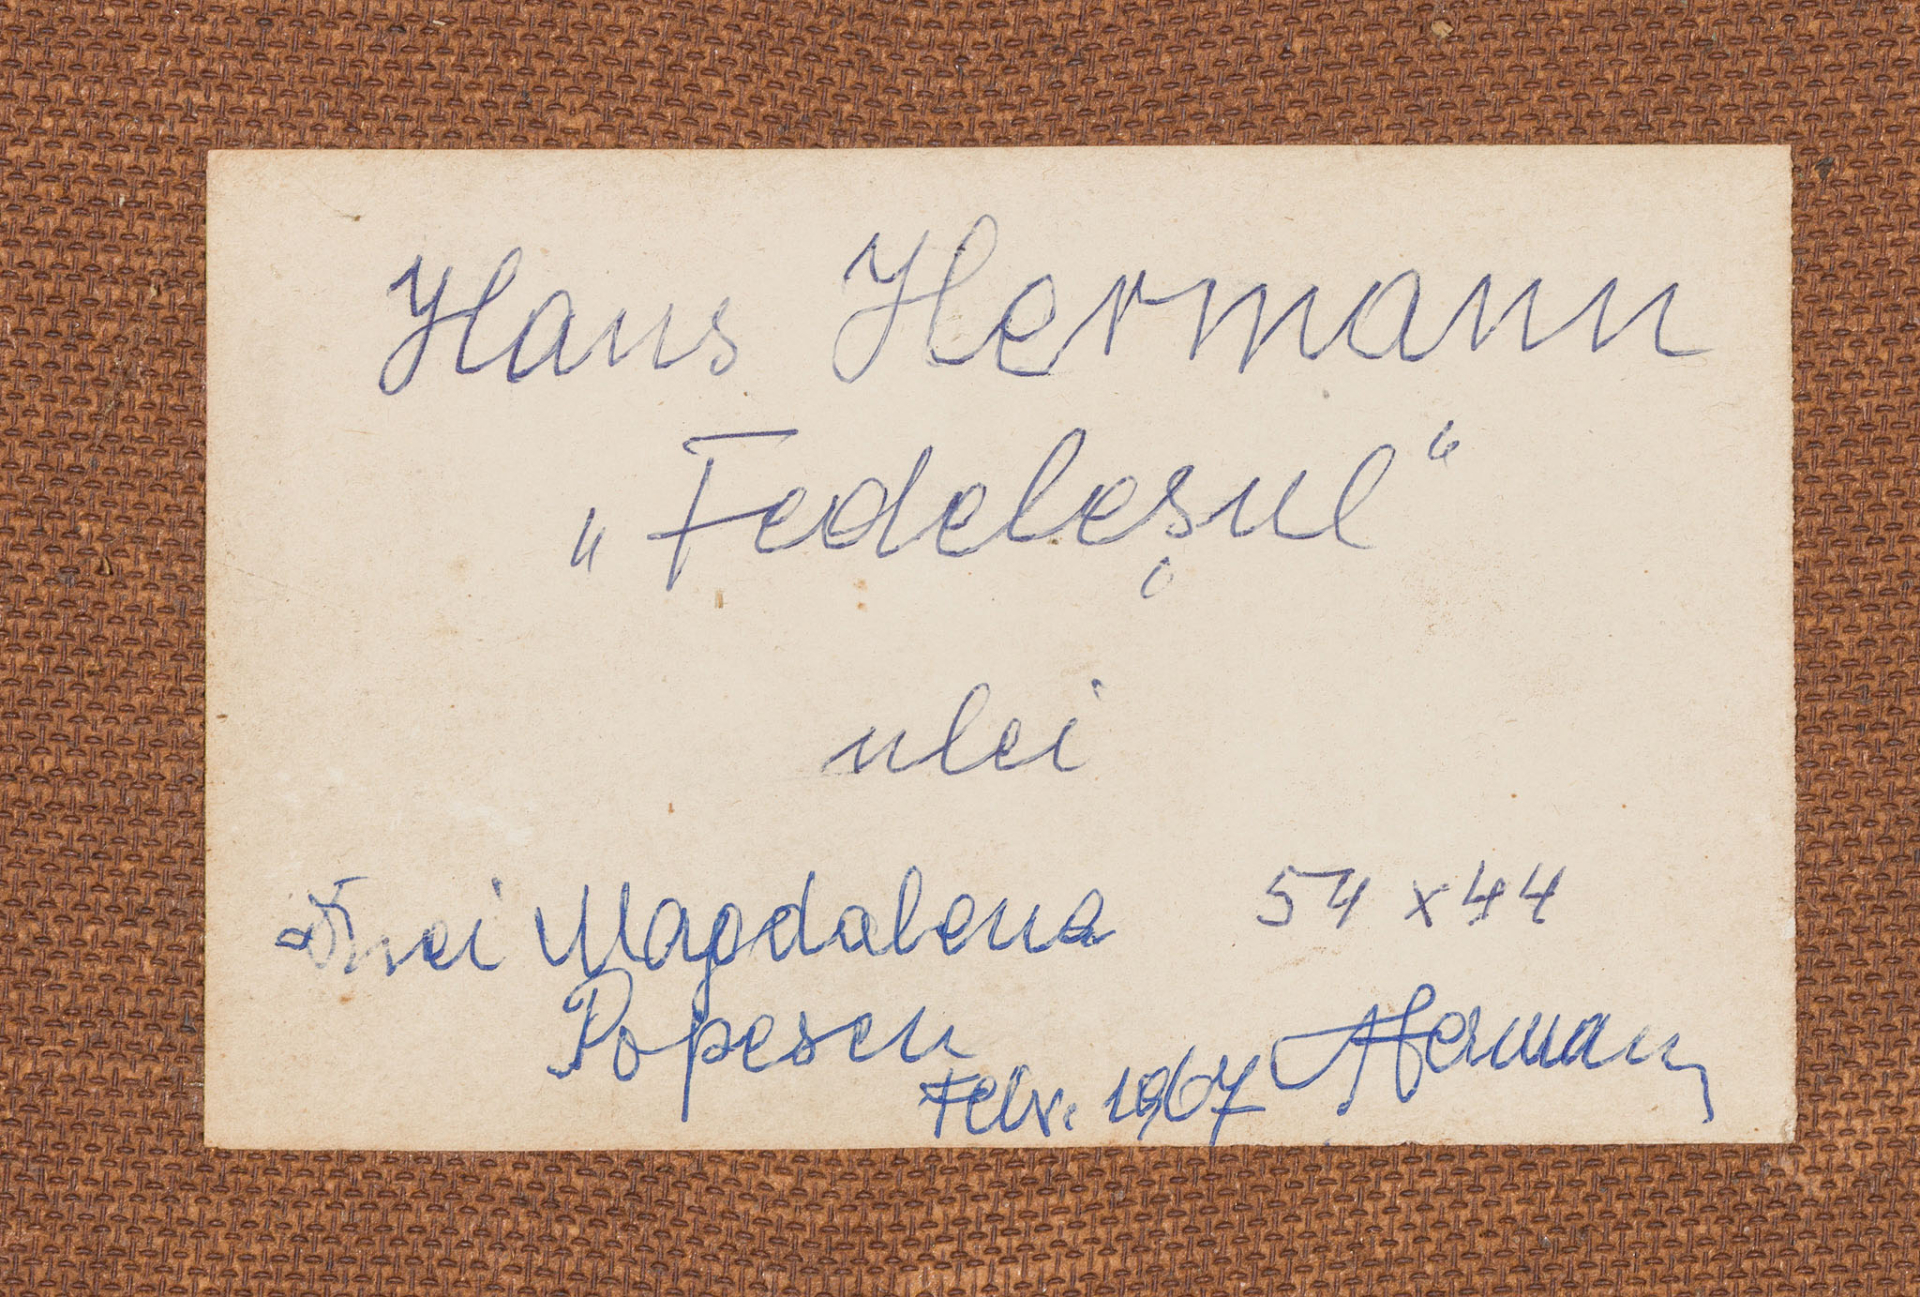 Hans Hermann
„Fedeleșul“
ulei
Magdalena 54 x 44
Popescu
Febr. 1967 Hermann